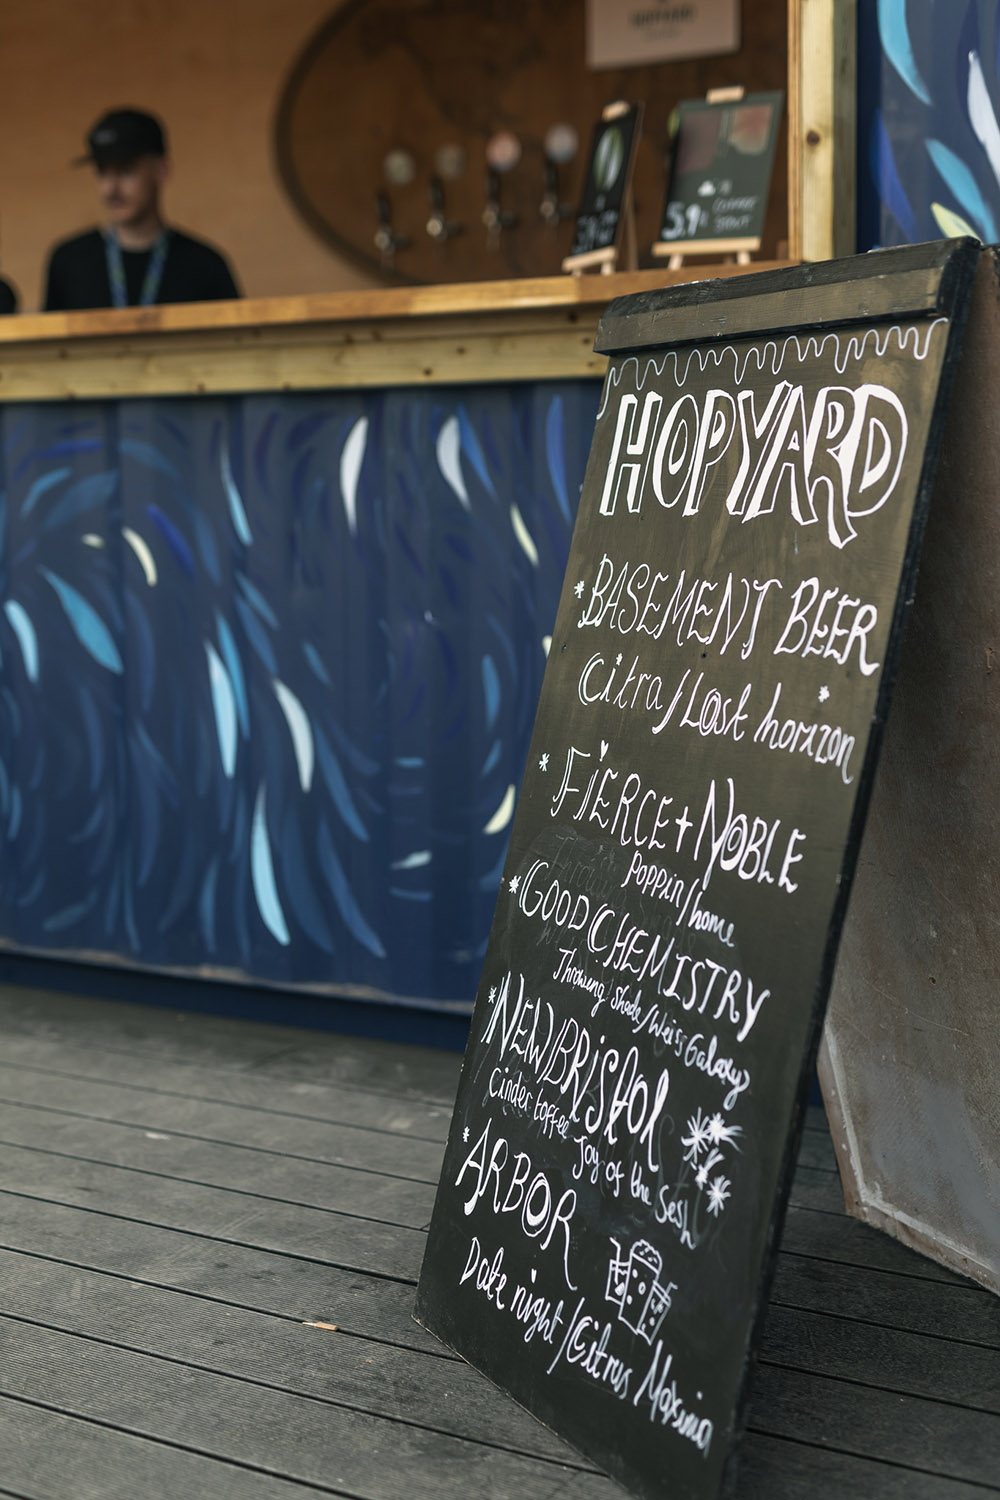 HOPYARD
5.9%
HOPYARD
*BASEMENT BEER
Citra/Lost horizon
FIERCE + NOBLE
Poppin/home
GOOD CHEMISTRY
Throwing Shade/Weiss Galaxy
NEW BRISTOL
Cinder toffee Joy of the Sesh
ARBOR
Date night/Citrus Maxima